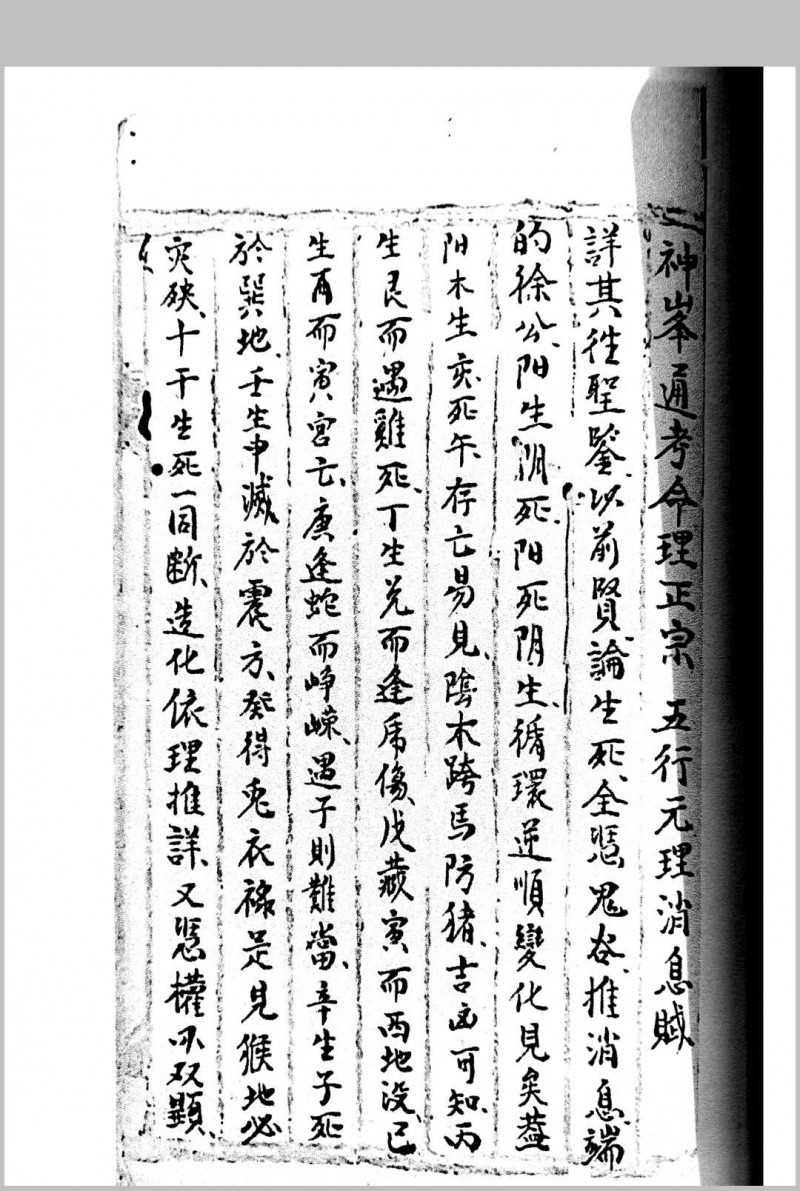 神峯通考命理正宗 五行元理消息賦
詳其徃聖鑒、以前賢論生死、全慿鬼谷、推消息、端
的徐公、阳生阴死、阳死阴生、循環逆順變化見矣、葢
阳木生亥死午、存亡易見、陰木跨馬防猪、吉凶可知、丙
生艮而遇雞死、丁生兑而逢虎傷、戊藏寅而西地没、己
生酉而寅宫亡、庚逢蛇而峥嵘、遇子則難當、辛生子死
於巽地、壬生申滅於震方、癸得兎衣禄足、見猴地必
灾殃、十干生死一同断、造化依理推詳、又慿權印双顕、